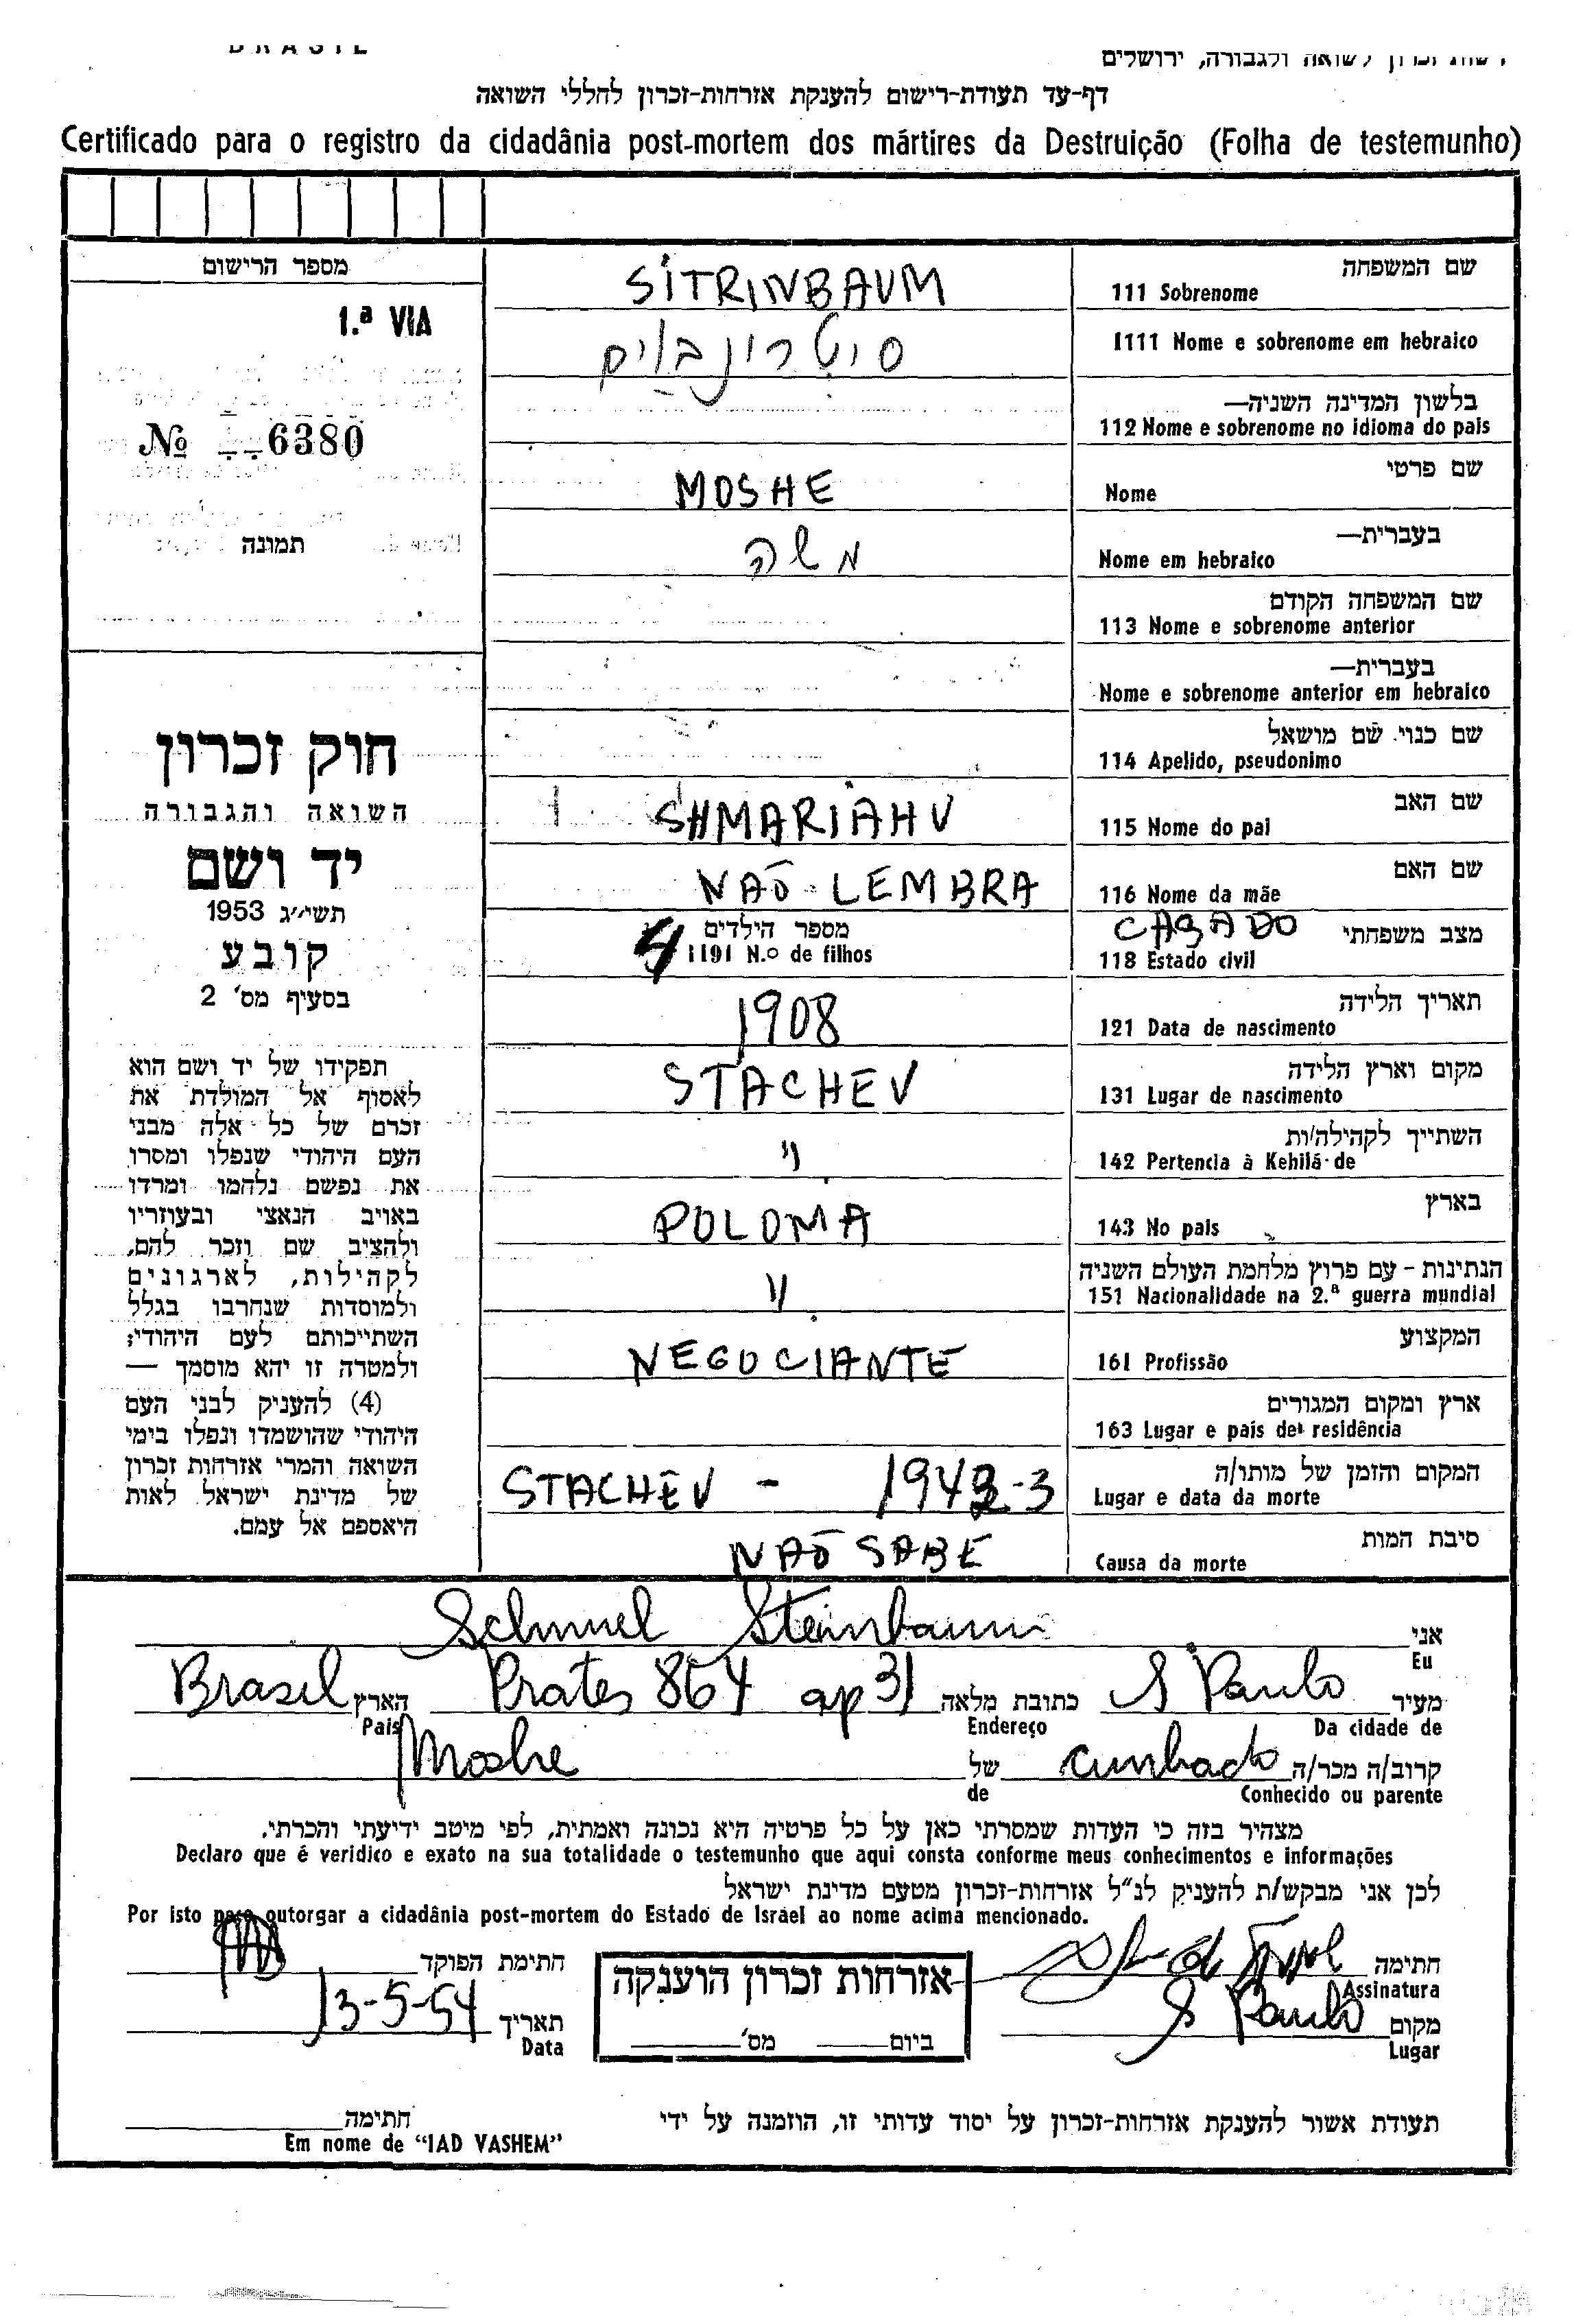 BRASIL
רשות זכרון לשואה ולגבורה, ירושלים
דף-עד תעודת-רישום להענקת אזרחות-זכרון לחללי השואה
Certificado para o registro da cidadânia post-mortem dos mártires da Destruição (Folha de testemunho)
מספר הרישום
1.ª VIA
№ 6380
תמונה
חוק זכרון
השואה והגבורה
יד ושם
תשי״ג 1953
קובע
בסעיף מס' 2
תפקידו של יד ושם הוא
לאסוף אל המולדת את
זכרם של כל אלה מבני
העם היהודי שנפלו ומסרו
את נפשם נלחמו ומרדו
באויב הנאצי ובעוזריו
ולהציב שם וזכר להם,
לקהילות, לארגונים
ולמוסדות שנחרבו בגלל
השתייכותם לעם היהודי;
ולמטרה זו יהא מוסמך —
(4) להעניק לבני העם
היהודי שהושמדו ונפלו בימי
השואה והמרי אזרחות זכרון
של מדינת ישראל לאות
היאספם אל עמם.
שם המשפחה
111 Sobrenome SITRINBAUM
1111 Nome e sobrenome em hebraico סיטרינבוים
בלשון המדינה השניה—
112 Nome e sobrenome no idioma do pais
שם פרטי
Nome MOSHE
בעברית—
Nome em hebraico משה
שם המשפחה הקודם
113 Nome e sobrenome anterior
בעברית—
Nome e sobrenome anterior em hebraico
שם כנוי. שם מושאל
114 Apelido, pseudonimo
שם האב
115 Nome do pai SHMARIAHU
שם האם
116 Nome da mãe NAÕ LEMBRA
מצב משפחתי CASADO
118 Estado civil
מספר הילדים
1191 N.º de filhos 4
תאריך הלידה
121 Data de nascimento 1908
מקום וארץ הלידה
131 Lugar de nascimento STACHEV
השתייך לקהילה/ות
142 Pertencia à Kehilá de "
בארץ
143 No pais POLONIA
הנתינות - עם פרוץ מלחמת העולם השניה
151 Nacionalidade na 2.ª guerra mundial "
המקצוע
161 Profissão NEGOCIANTE
ארץ ומקום המגורים
163 Lugar e pais de residência
המקום והזמן של מותו/ה
Lugar e data da morte STACHEV - 1942-3
סיבת המות
Causa da morte NAÕ SABE
אני Schmuel Steinbaum
Eu
מעיר S Paulo כתובת מלאה Prates 864 ap 31 הארץ Brasil
Da cidade de Endereço Pais
קרוב/ה מכר/ה cunhado של Moshe
Conhecido ou parente de
מצהיר בזה כי העדות שמסרתי כאן על כל פרטיה היא נכונה ואמתית, לפי מיטב ידיעתי והכרתי.
Declaro que é veridico e exato na sua totalidade o testemunho que aqui consta conforme meus conhecimentos e informações
לכן אני מבקש/ת להעניק לנ"ל אזרחות-זכרון מטעם מדינת ישראל
Por isto peço outorgar a cidadânia post-mortem do Estado de Israel ao nome acima mencionado.
חתימה
Assinatura
מקום S Paulo
Lugar
אזרחות זכרון הוענקה
ביום מס'
חתימת הפוקד
תאריך 13-5-54
Data
תעודת אשור להענקת אזרחות-זכרון על יסוד עדותי זו, הוזמנה על ידי
חתימה
Em nome de "IAD VASHEM"